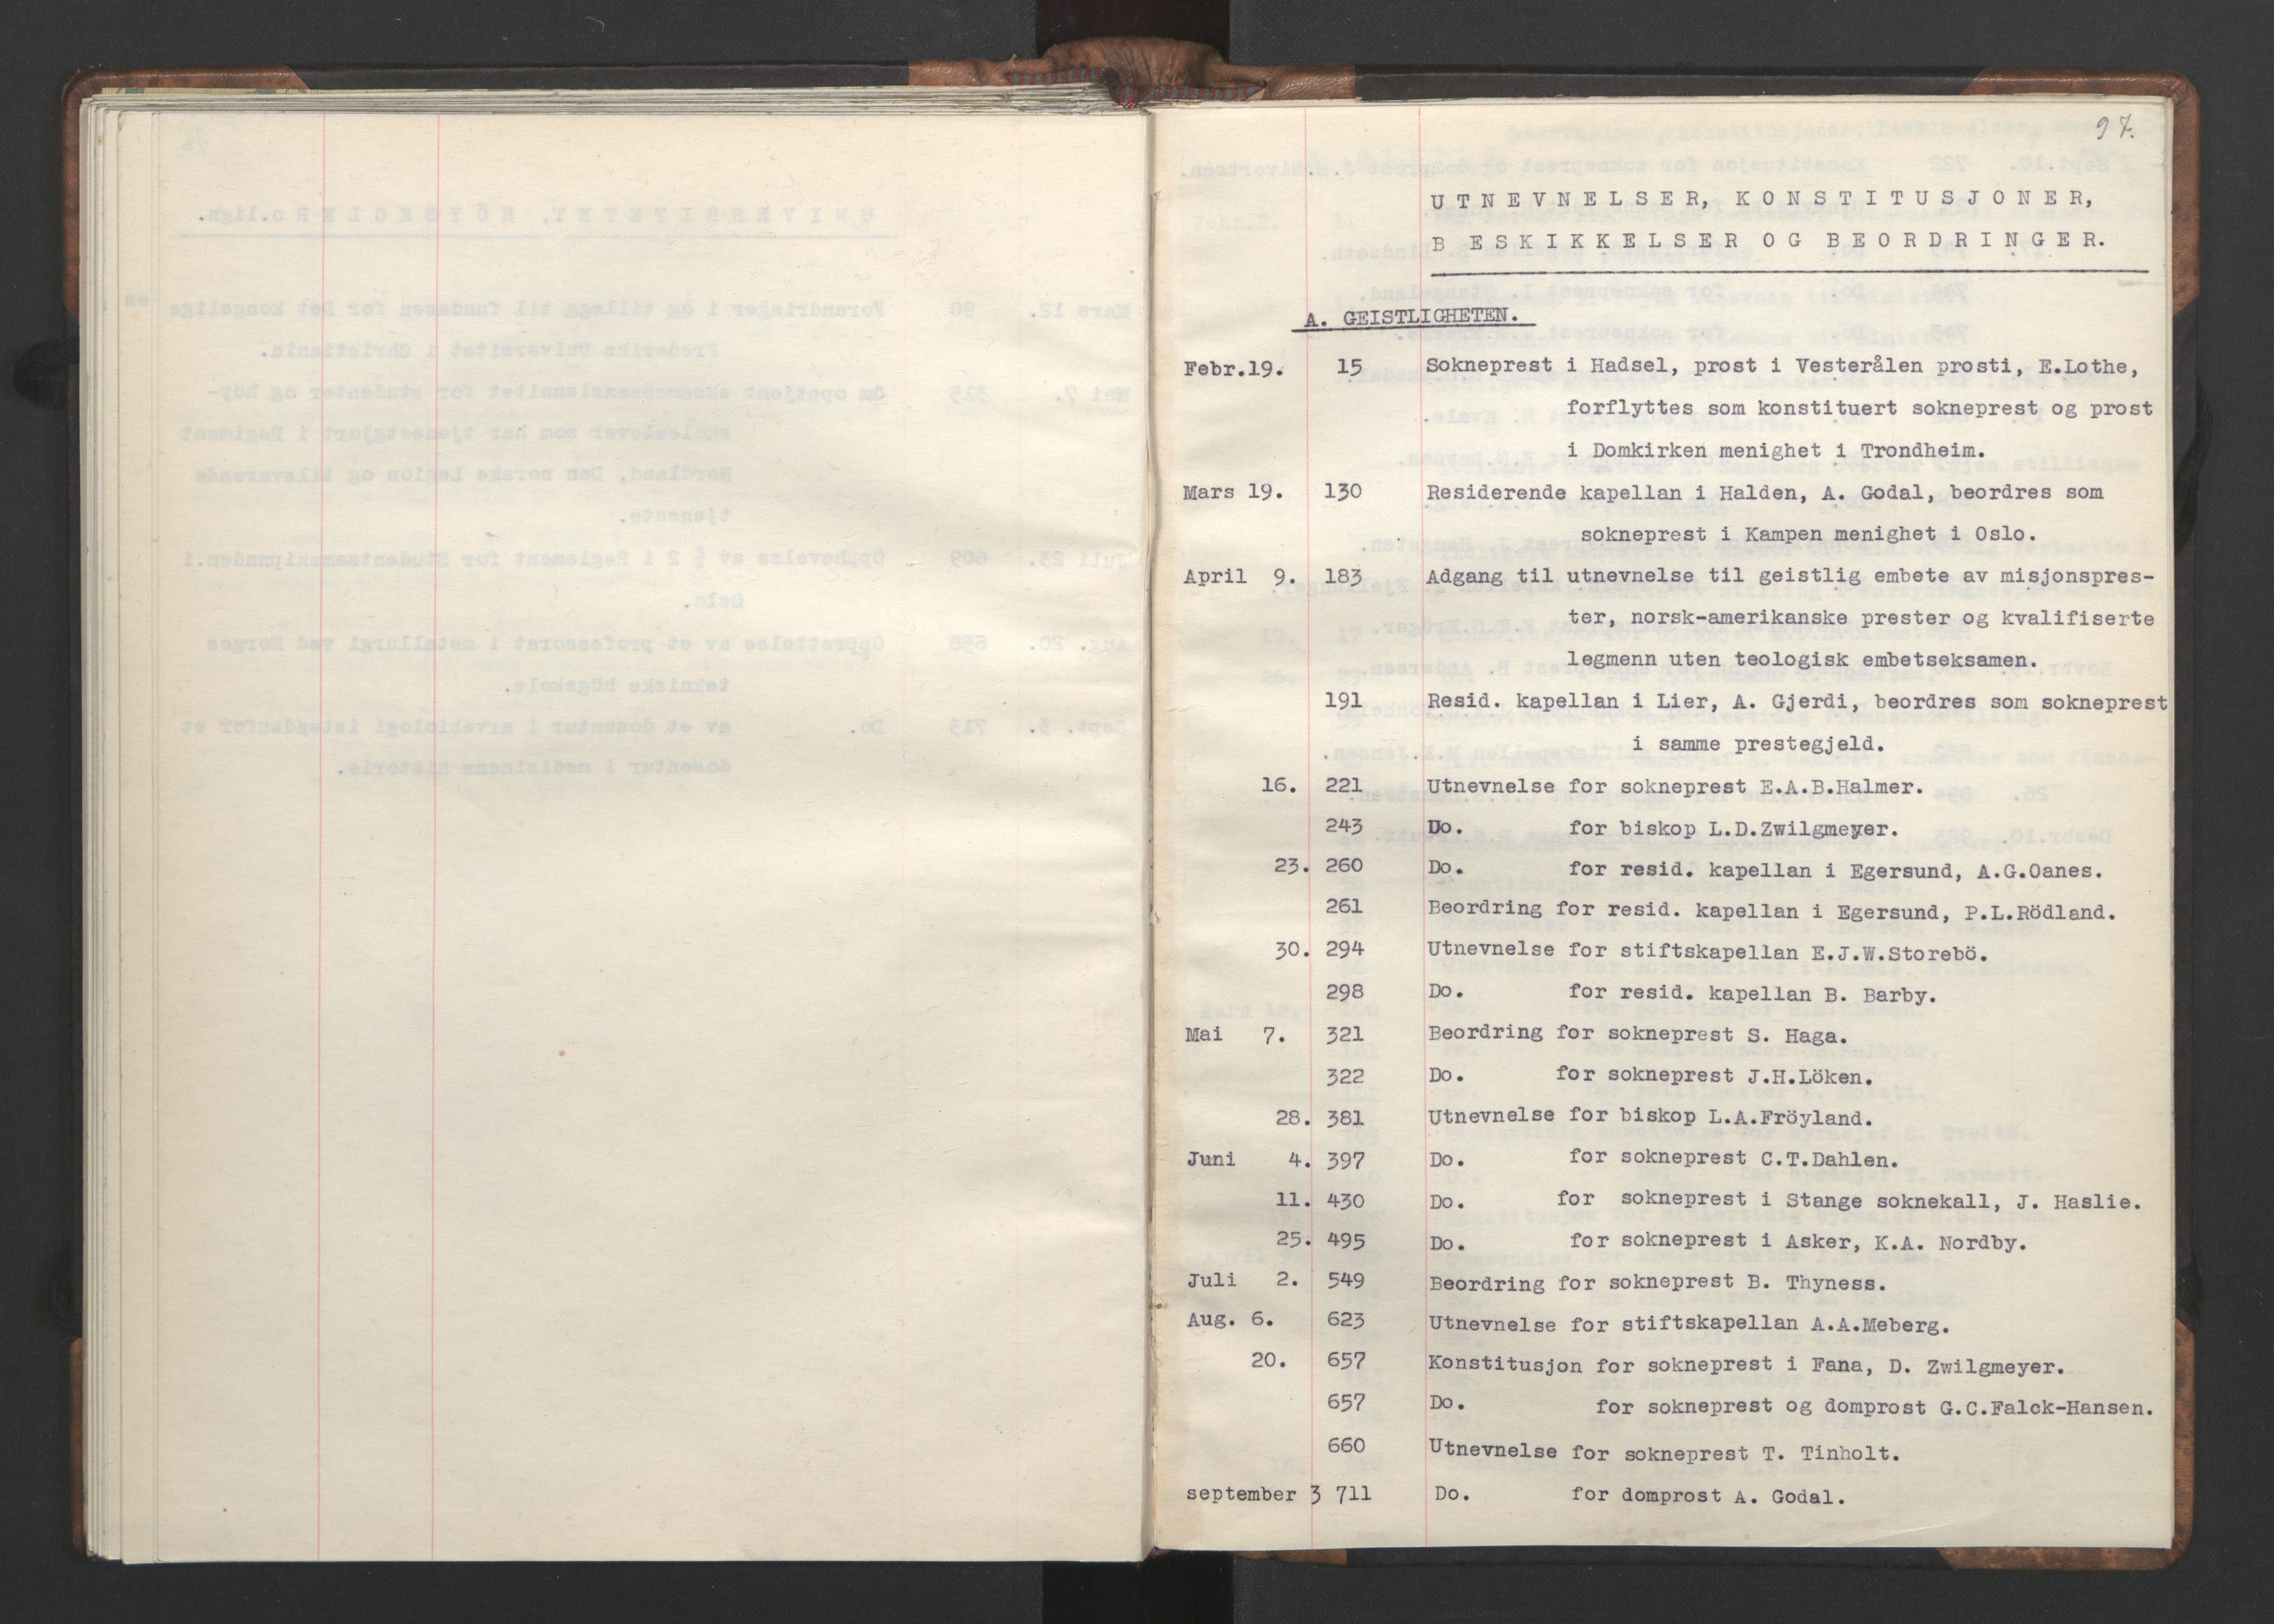 97.
UTNEVNELSER, KONSTITUSJONER,
BESKIKKELSER OG BEORDRINGER.
A. GEISTLIGHETEN.
Febr.19. 15 Sokneprest i Hadsel, prost i Vesterålen prosti, E.Lothe,
forflyttes som konstituert sokneprest og prost
i Domkirken menighet i Trondheim.
Mars 19. 130 Residerende kapellan i Halden, A. Godal, beordres som
sokneprest i Kampen menighet i Oslo.
April 9. 183 Adgang til utnevnelse til geistlig embete av misjonspres-
ter, norsk-amerikanske prester og kvalifiserte
legmenn uten teologisk embetseksamen.
191 Resid. kapellan i Lier, A. Gjerdi, beordres som sokneprest
i samme prestegjeld.
16. 221 Utnevnelse for sokneprest E.A.B.Halmer.
243 Do. for biskop L.D.Zwilgmeyer.
23. 260 Do. for resid. kapellan i Egersund, A.G.Oanes.
261 Beordring for resid. kapellan i Egersund, P.L.Rödland.
30. 294 Utnevnelse for stiftskapellan E.J.W.Storebö.
298 Do. for resid. kapellan B. Barby.
Mai 7. 321 Beordring for sokneprest S. Haga.
322 Do. for sokneprest J.H.Löken.
28. 381 Utnevnelse for biskop L.A.Fröyland.
Juni 4. 397 Do. for sokneprest C.T.Dahlen.
11. 430 Do. for sokneprest i Stange soknekall, J. Haslie.
25. 495 Do. for sokneprest i Asker, K.A. Nordby.
Juli 2. 549 Beordring for sokneprest B. Thyness.
Aug. 6. 623 Utnevnelse for stiftskapellan A.A.Meberg.
20. 657 Konstitusjon for sokneprest i Fana, D. Zwilgmeyer.
657 Do. for sokneprest og domprost G.C.Falck-Hansen.
660 Utnevnelse for sokneprest T. Tinholt.
september 3 711 Do. for domprost A. Godal.